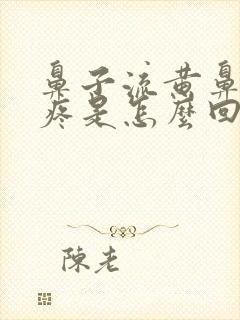 鼻子流黄鼻
疼是怎麼回
陳老